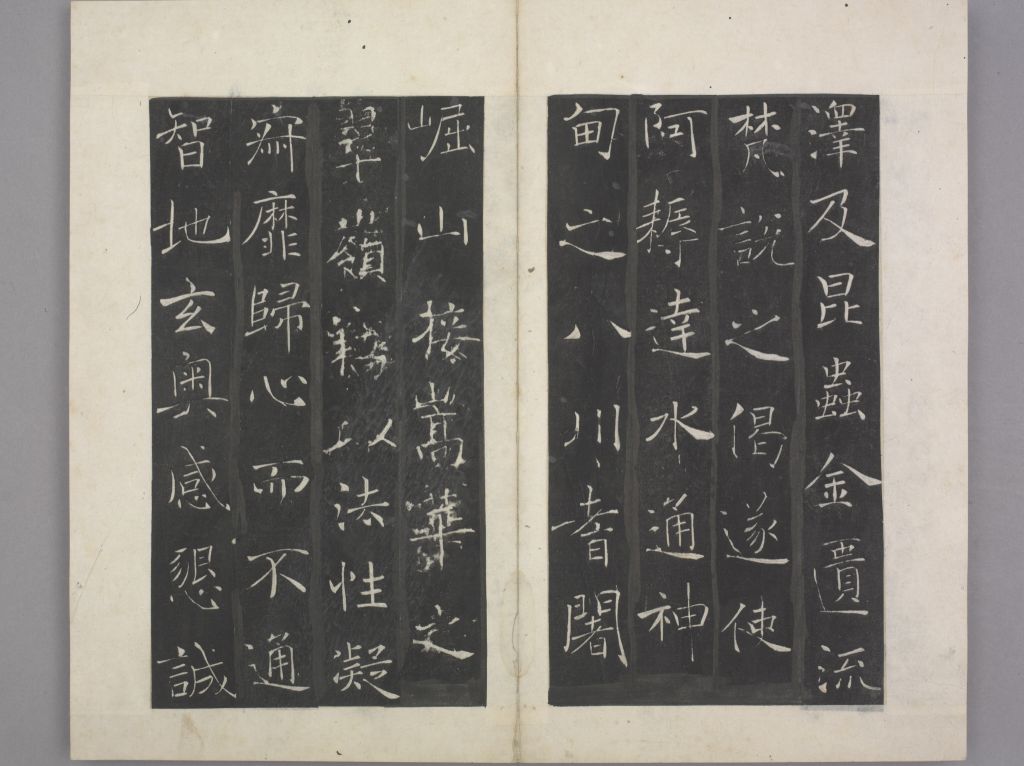 澤及昆蟲金匱流
梵說之偈遂使
阿耨達水通神
甸之八川耆闍
崛山接嵩華之
翠嶺竊以法性凝
寂靡歸心而不通
智地玄奧感懇誠